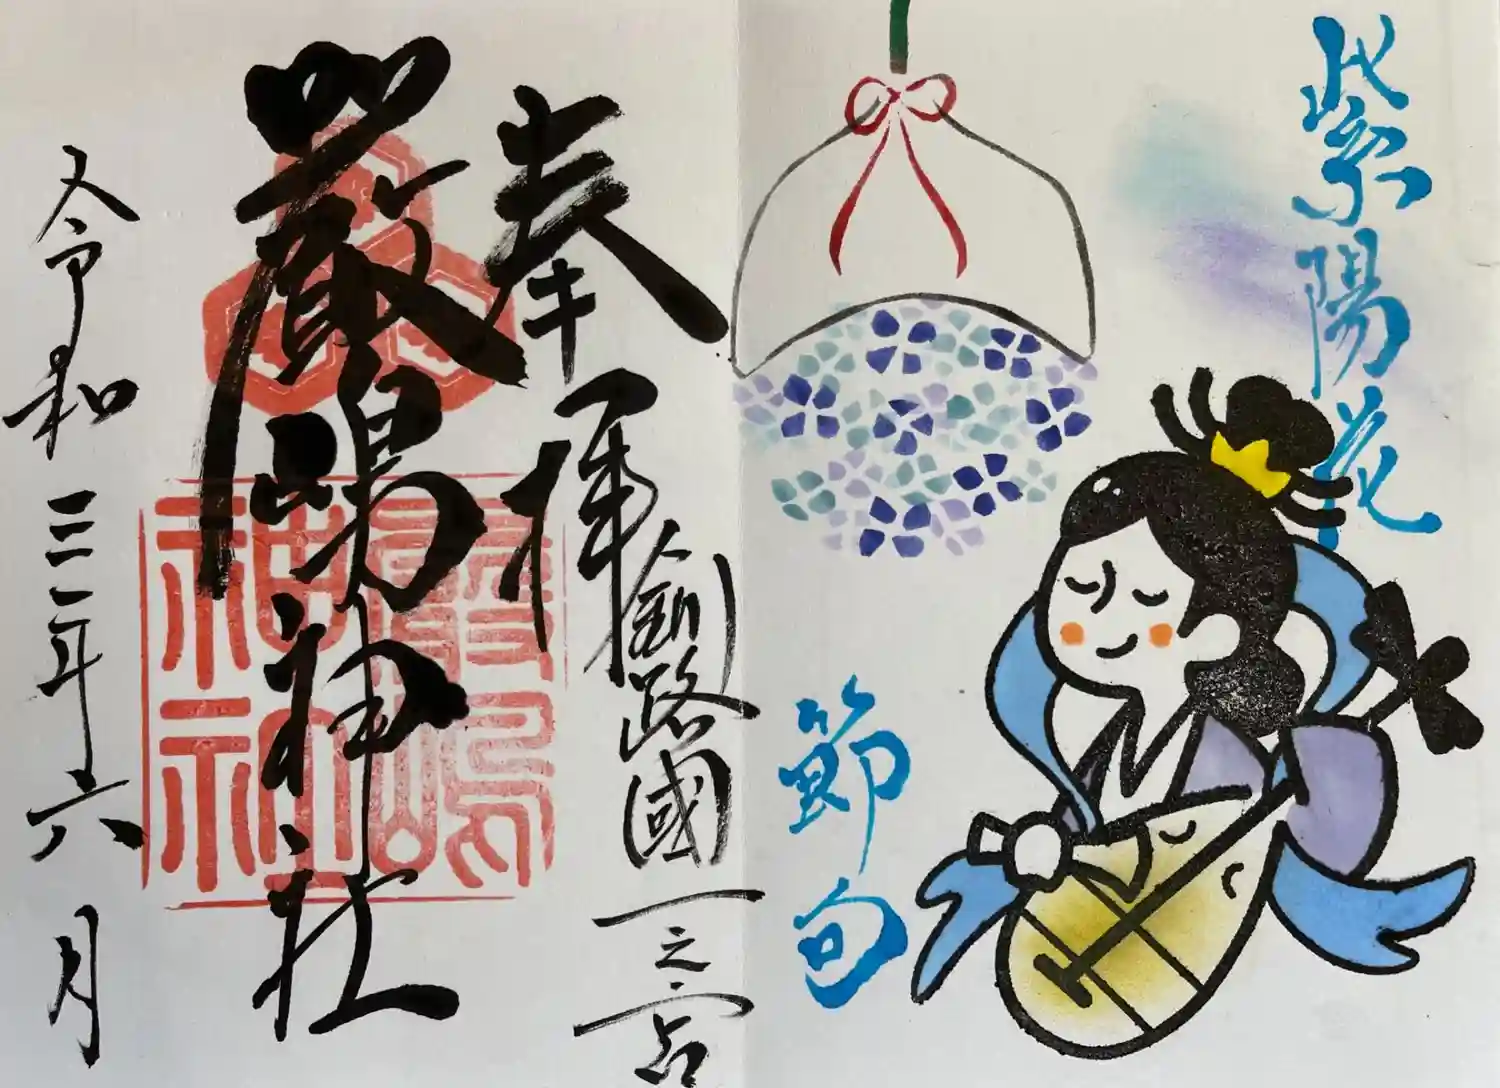 紫陽花
節句
奉拝
釧路國一之宮
厳島神社
令和三年六月
嚴嶋神社